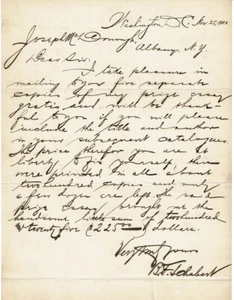 Washington D.C. Nov 25, 
Joseph McDonough,
Albany, N.Y.
Dear Sir:
I take pleasure in
mailing to you five separate
copies of my prize essay
gratis, and will be thank-
ful to you if you will please
include the title and author
in your subsequent catalogues.
The price therefor you are at
liberty to fix yourself, there
were printed in all about
two hundred copies and only
a few are left, the said
prize essay brought me the
handsome little sum of two hundred
twenty five (225 dollars.
Very truly yours
B.F. Schubert